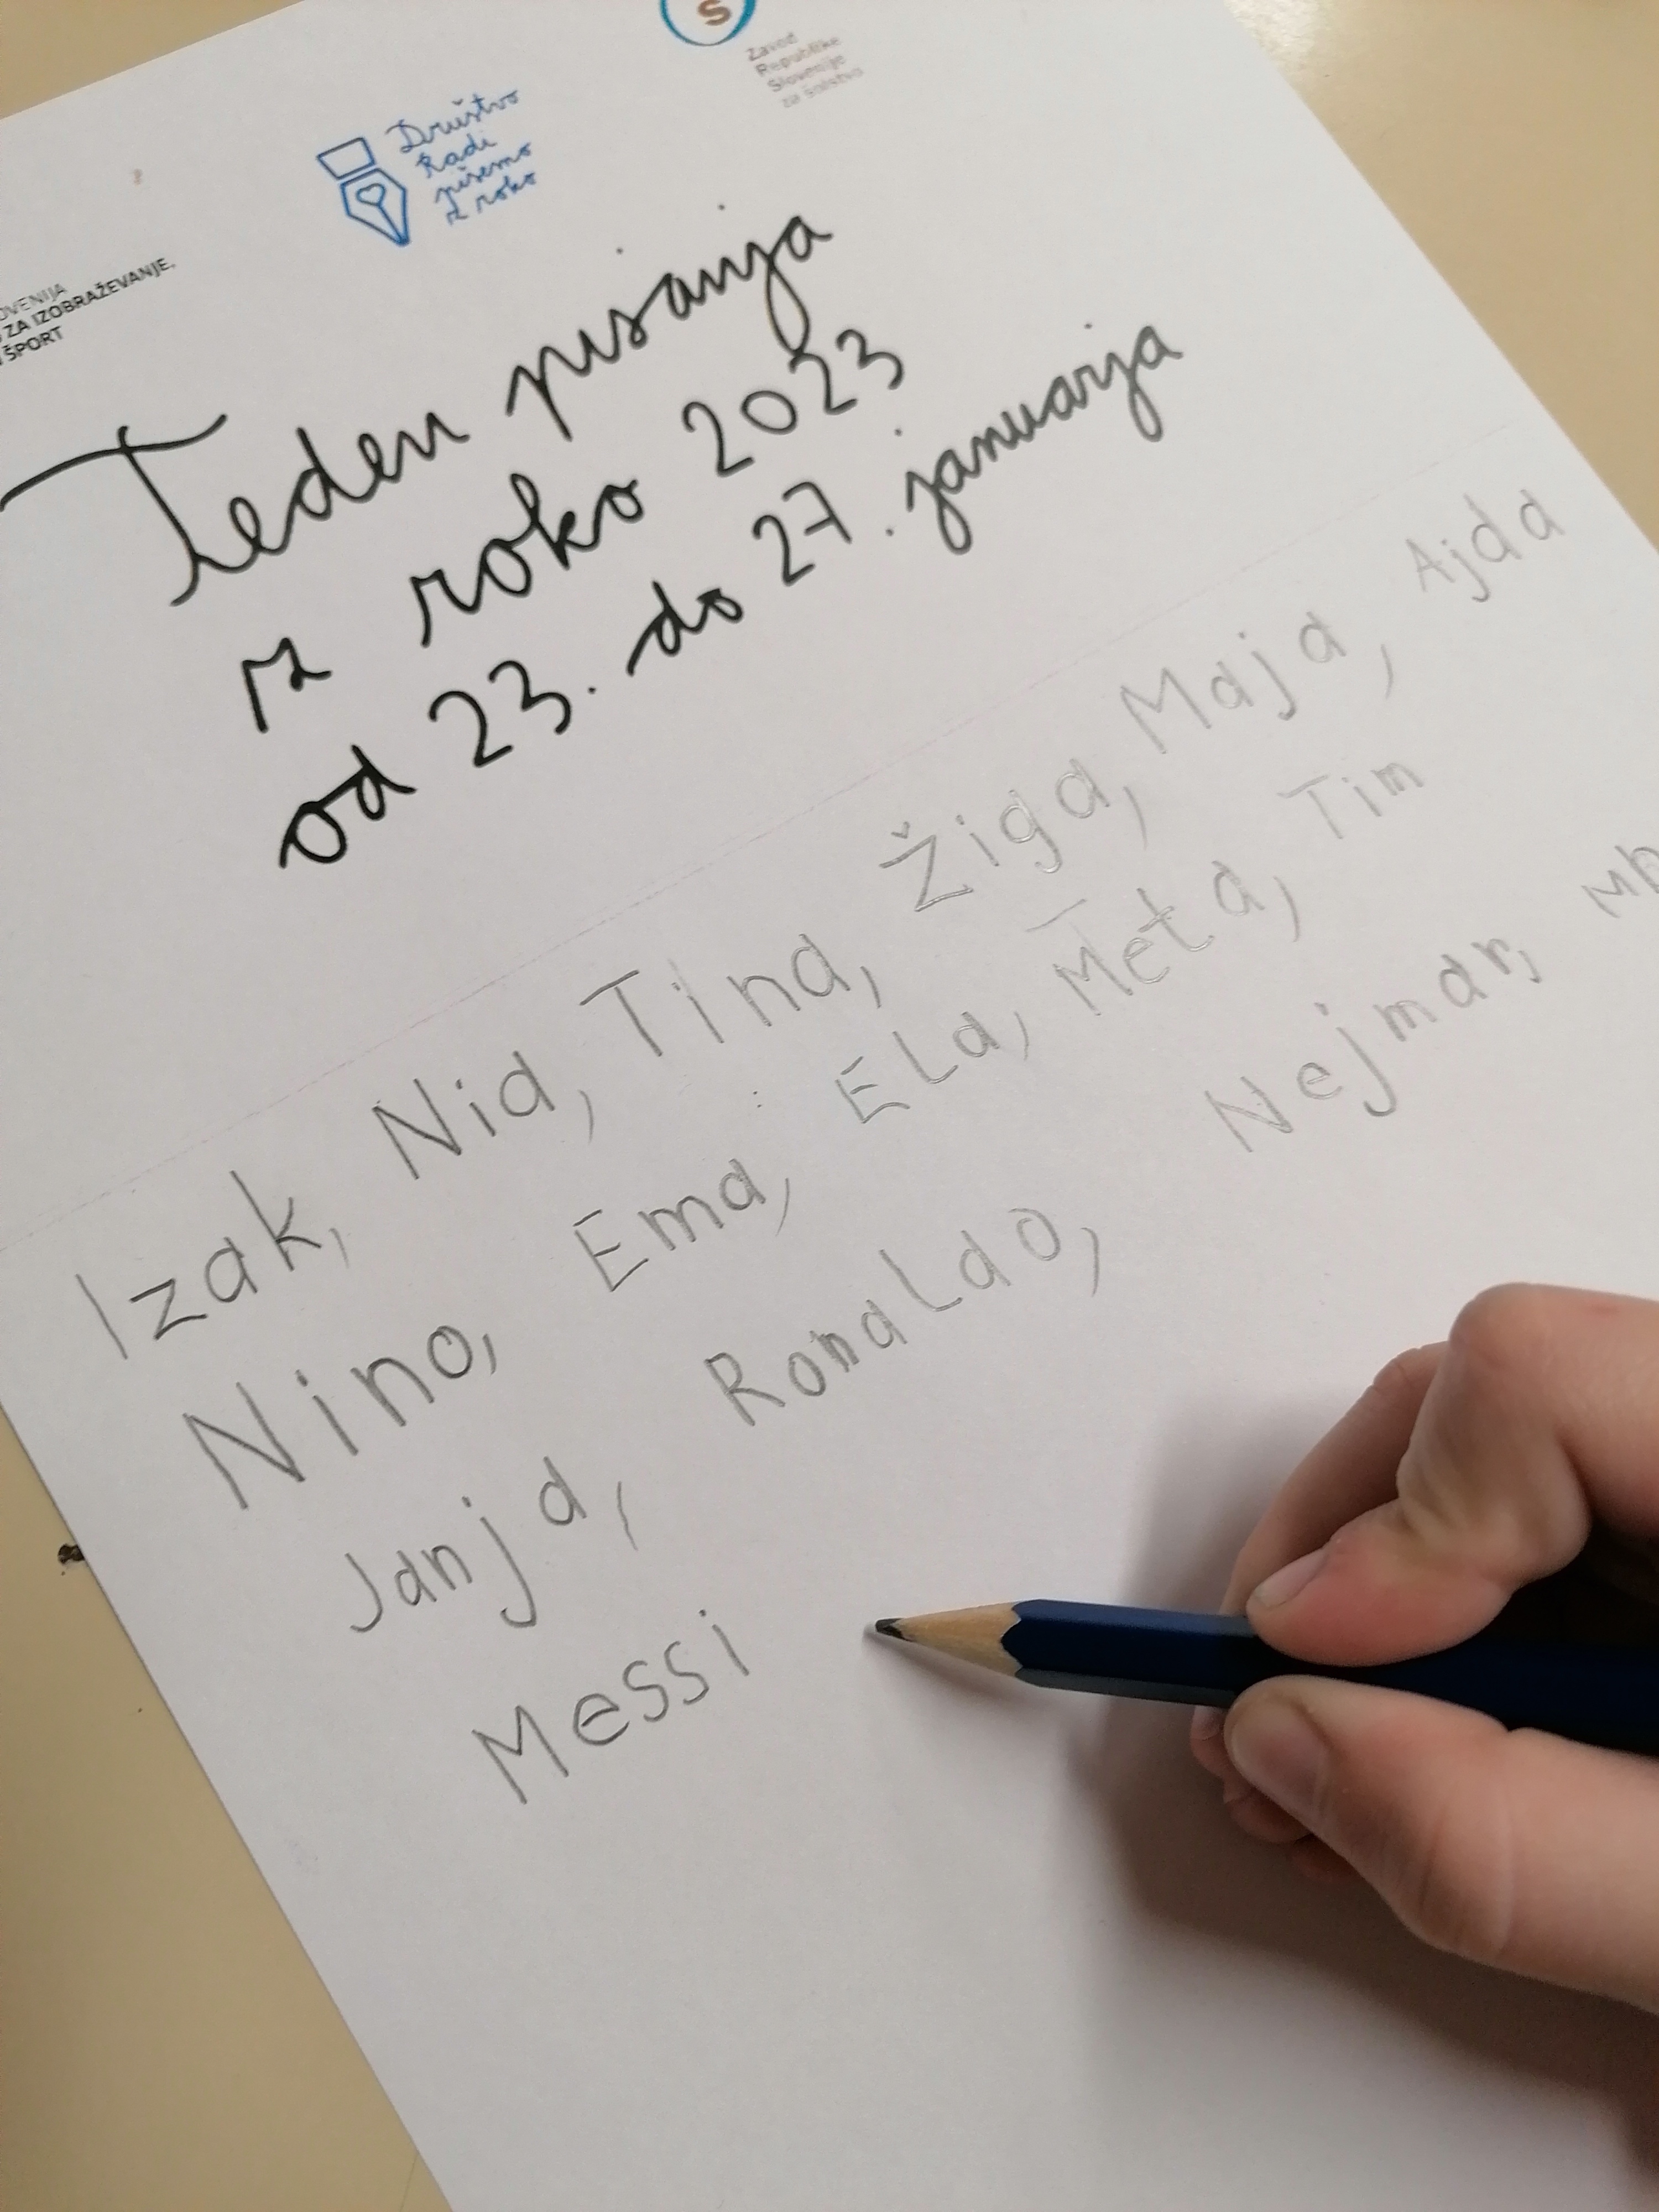 S
Zavod
Republike
Slovenije
za šolstvo
Društvo
Radi
pišemo
z roko
ZA IZOBRAŽEVANJE,
ŠPORT
Teden pisanja
z roko 2023
od 23. do 27. januarja
Izak, Nia, Tina, Žiga, Maja, Ajda
Nino, Ema, ELa, Meta, Tim
Janja, RonaLdo, Nejmar,
Messi